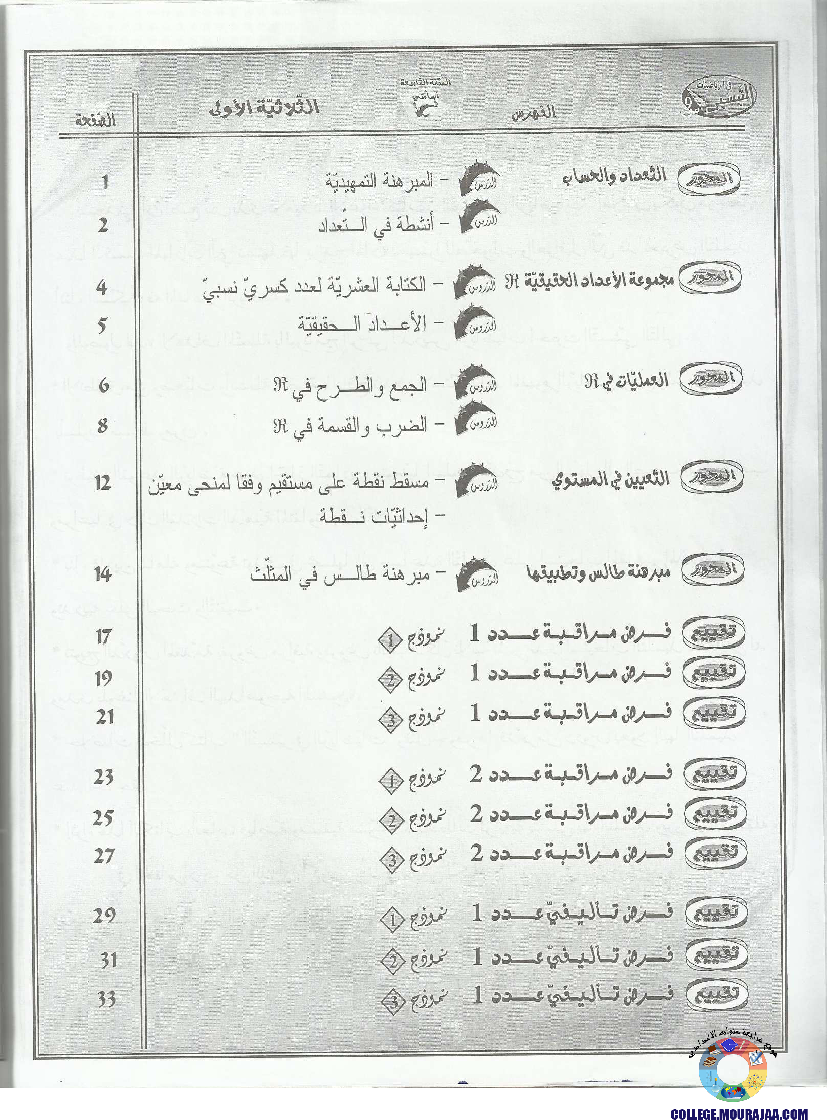 في الرياضيات
السنة التاسعة أساسي
الفهرس الثّلاثيّة الأولى الصّفحة
المحور التّعداد والحساب الدّروس - المبرهنة التمهيديّة 1
الدّروس - أنشطة في التّعداد 2
المحور مجموعة الأعداد الحقيقيّة ℜ الدّروس - الكتابة العشريّة لعدد كسريّ نسبيّ 4
الدّروس - الأعداد الحقيقيّة 5
المحور العمليّات في ℜ الدّروس - الجمع والطرح في ℜ 6
الدّروس - الضرب والقسمة في ℜ 8
المحور التّعيين في المستوي الدّروس - مسقط نقطة على مستقيم وفقا لمنحى معيّن 12
- إحداثيّات نقطة
المحور مبرهنة طالس وتطبيقها الدّروس - مبرهنة طالس في المثلّث 14
تقييم فرض مراقبة عدد 1 نموذج 1 17
تقييم فرض مراقبة عدد 1 نموذج 2 19
تقييم فرض مراقبة عدد 1 نموذج 3 21
تقييم فرض مراقبة عدد 2 نموذج 1 23
تقييم فرض مراقبة عدد 2 نموذج 2 25
تقييم فرض مراقبة عدد 2 نموذج 3 27
تقييم فرض تأليفيّ عدد 1 نموذج 1 29
تقييم فرض تأليفيّ عدد 1 نموذج 2 31
تقييم فرض تأليفيّ عدد 1 نموذج 3 33
COLLEGE.MOURAJAA.COM